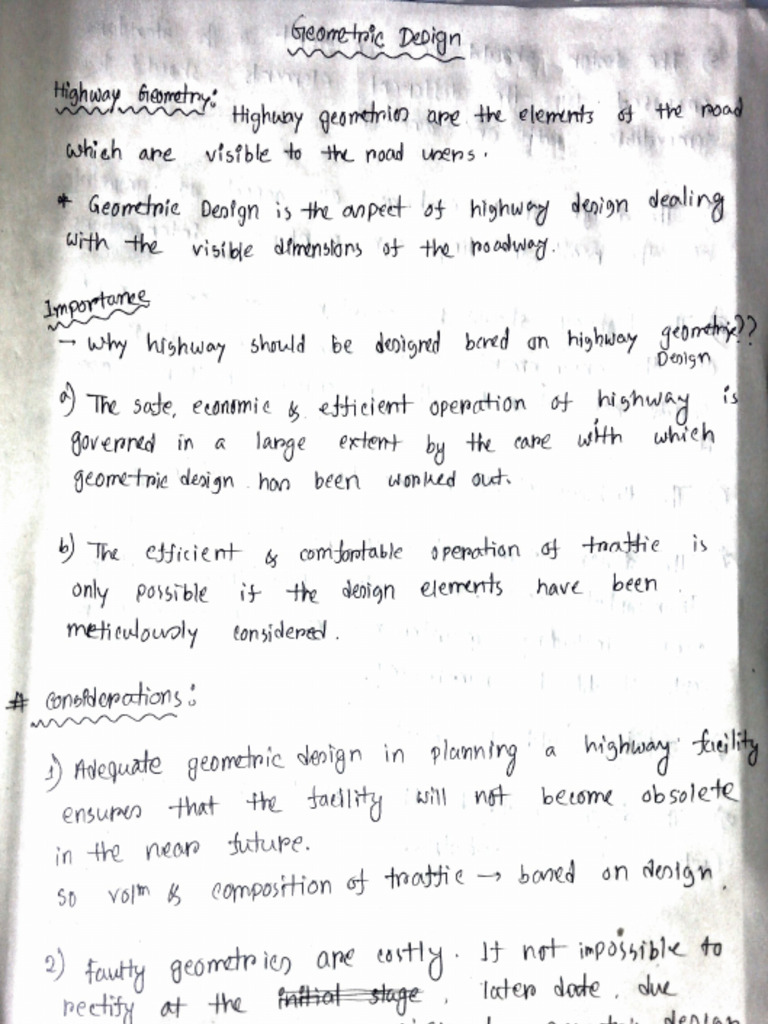 Geometric Design
Highway Geometry: Highway geometrics are the elements of the road
which are visible to the road users.
* Geometric Design is the aspect of highway design dealing
with the visible dimensions of the roadway.
Importance
→ Why highway should be designed based on highway geometric??
Design
a) The safe, economic & efficient operation of highway is
governed in a large extent by the care with which
geometric design has been worked out.
b) The efficient & comfortable operation of traffic is
only possible if the design elements have been
meticulously considered.
# Considerations:
1) Adequate geometric design in planning a highway facility
ensures that the facility will not become obsolete
in the near future.
So volm & composition of traffic → based on design.
2) Faulty geometrics are costly. If not impossible to
rectify at the initial stage. later date. due
geometric design